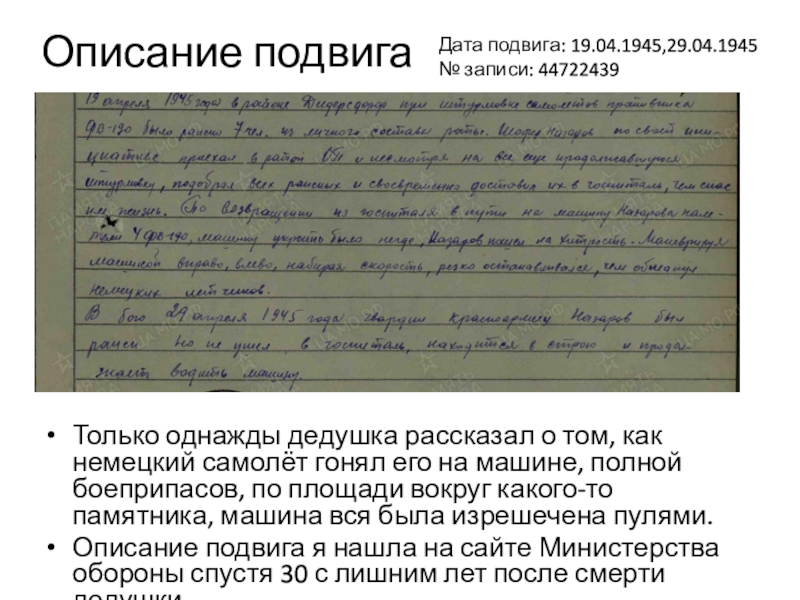 Описание подвига
Дата подвига: 19.04.1945,29.04.1945
№ записи: 44722439
19 апреля 1945 года в районе Дидерсдорф при штурмовке самолетов противника
ФВ-190 было ранено 7 чел. из личного состава роты. Шофер Назаров по своей ини-
циативе приехал в район ОП и несмотря на все еще продолжавшуюся
штурмовку, подобрал всех раненых и своевременно доставил их в госпиталь, чем спас
им жизнь. По возвращении из госпиталя в пути на машину Назарова нале-
тели 4 ФВ-190, машину укрыть было негде, Назаров пошел на хитрость. Маневрируя
машиной вправо, влево, набирая скорость, резко останавливаясь, чем обманул
немецких летчиков.
В бою 29 апреля 1945 года гвардии красноармеец Назаров был
ранен но не ушел в госпиталь, находится в строю и продол-
жает водить машину.
• Только однажды дедушка рассказал о том, как
немецкий самолёт гонял его на машине, полной
боеприпасов, по площади вокруг какого-то
памятника, машина вся была изрешечена пулями.
• Описание подвига я нашла на сайте Министерства
обороны спустя 30 с лишним лет после смерти
дедушки